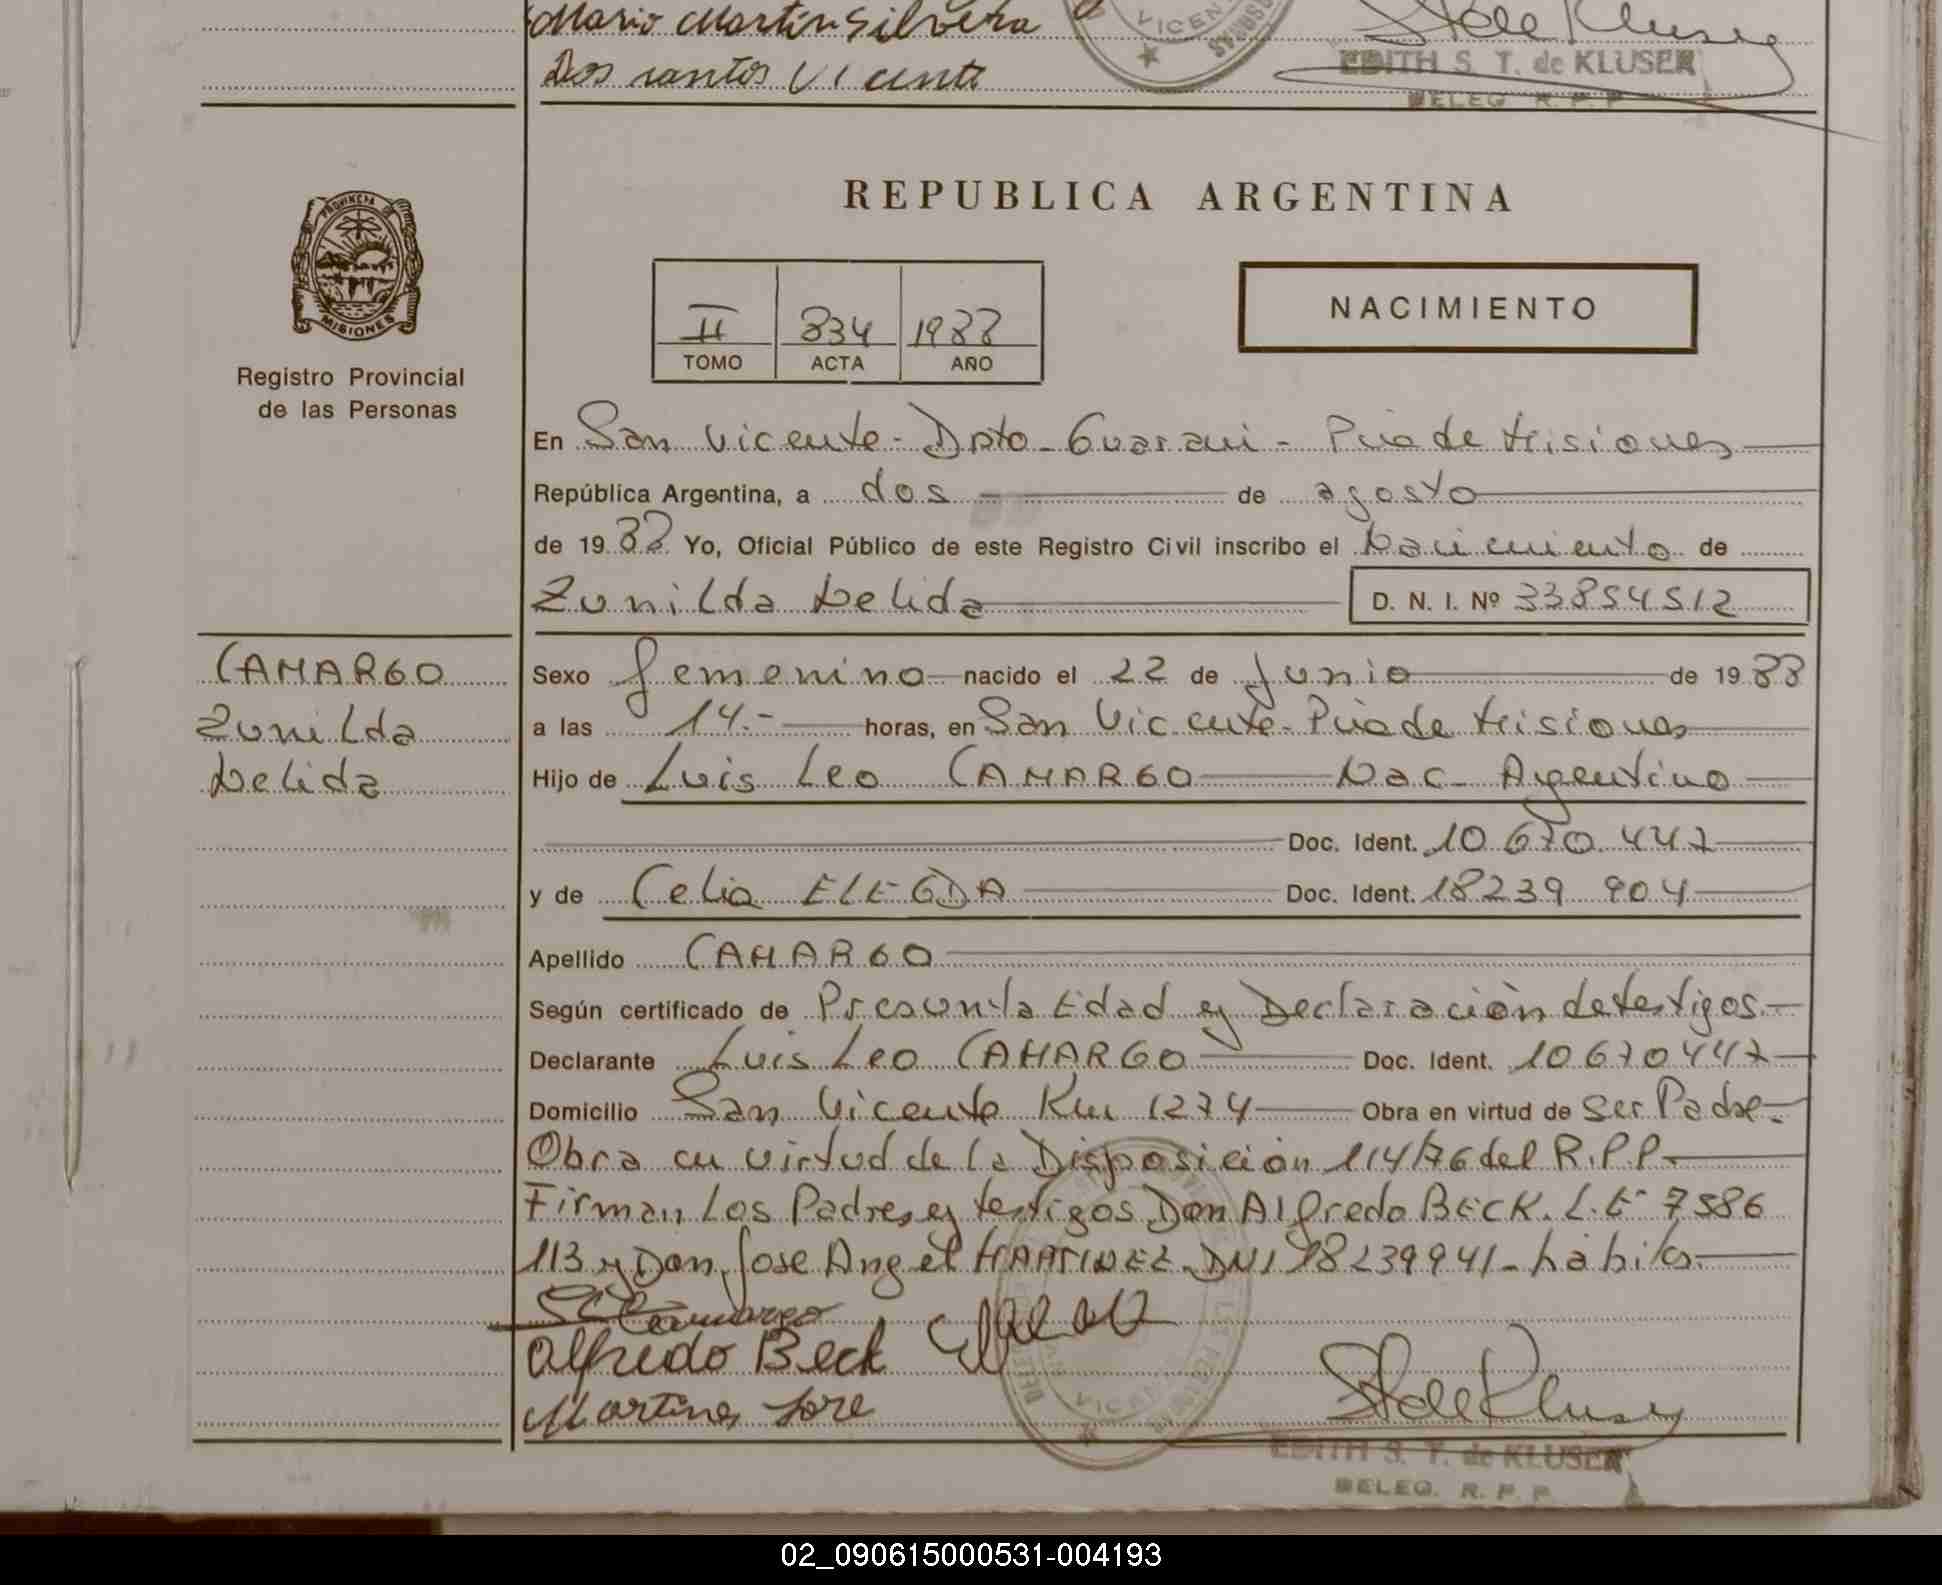 Mario Martin Silvera
Dos santos Vicente
EDITH S. T. de KLUSER
DELEG. R. P. P.
REPUBLICA ARGENTINA
PROVINCIA
MISIONES
Registro Provincial
de las Personas
II 834 1988
TOMO ACTA AÑO
NACIMIENTO
En San Vicente - Dpto - Guarani - Pcia de Misiones
República Argentina, a dos de agosto
de 1988 Yo, Oficial Público de este Registro Civil inscribo el Nacimiento de
Zunilda Nelida D. N. I. Nº 33854512
CAMARGO
Zunilda
Nelida
Sexo femenino nacido el 22 de Junio de 1988
a las 14.- horas, en San Vicente - Pcia de Misiones
Hijo de Luis Leo CAMARGO Nac- Argentino
Doc. Ident. 10.670.447
y de Celia Doc. Ident. 18239 904
Apellido CAMARGO
Según certificado de Presunta Edad y Declaración de testigos.-
Declarante Luis Leo CAMARGO Doc. Ident. 10670447
Domicilio San Vicente Km 1274 Obra en virtud de Ser Padre-
Obra en virtud de la Disposición 114/76 del R.P.P.
Firman Los Padres y testigos Don Alfredo BECK. L.E 7586
113 y Don Jose Angel MARTINEZ DNI 18239941 - hábiles
Camargo
Alfredo Beck
Martines Jose
EDITH S. T. de KLUSER
DELEG. R. P. P.
02_090615000531-004193